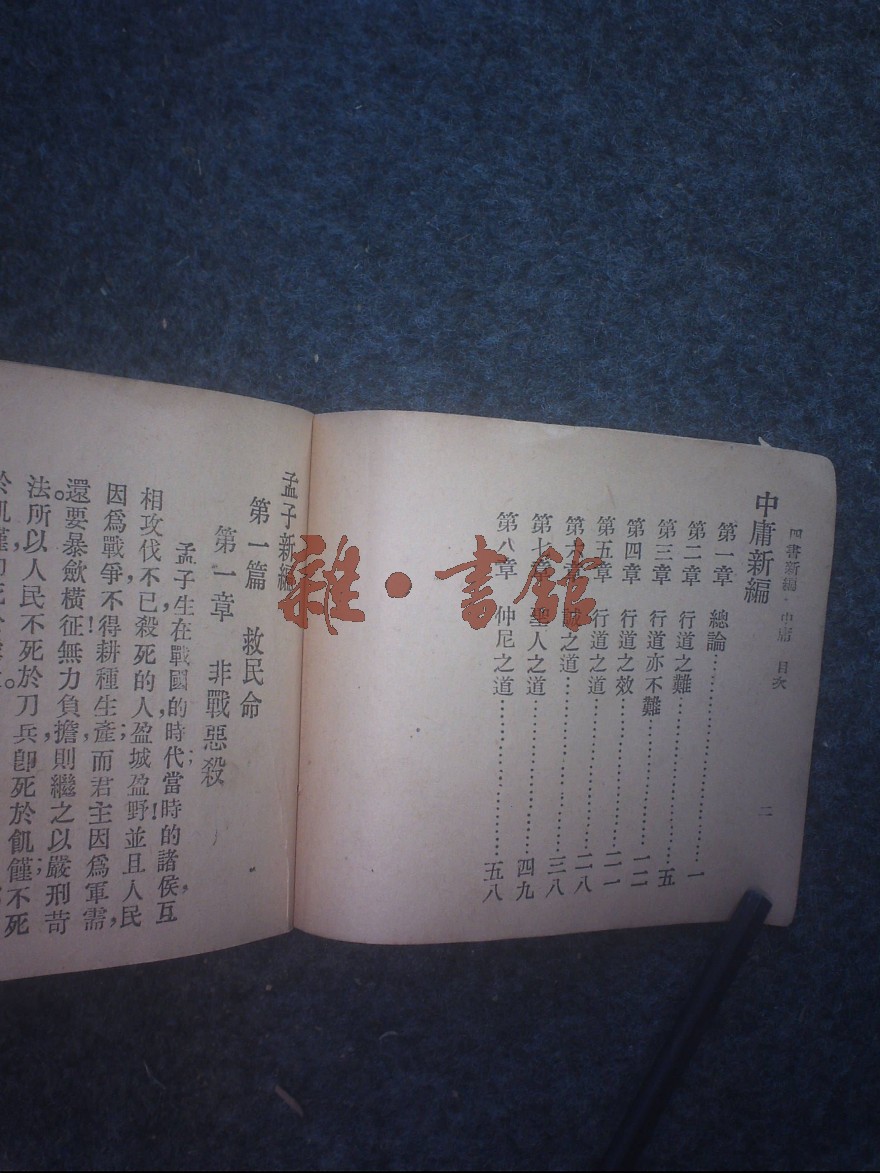 四書新編·中庸 目次 二
中庸新編
第一章 總論……一
第二章 行道之難……五
第三章 行道亦不難……一二
第四章 行道之效……二一
第五章 行道之道……二八
第六章 誠之道……三八
第七章 聖人之道……四九
第八章 仲尼之道……五八
孟子新編
第一篇 救民命
第一章 非戰惡殺
孟子生在戰國的時代,當時的諸侯,互
相攻伐不已,殺死的人盈城盈野!並且人民
因爲戰爭不得耕種生產;而君主因爲軍需,
還要暴斂橫征,無力負擔,則繼之以嚴刑苛
法。所以人民不死於刀兵,卽死於飢饉;不死
雜·書館